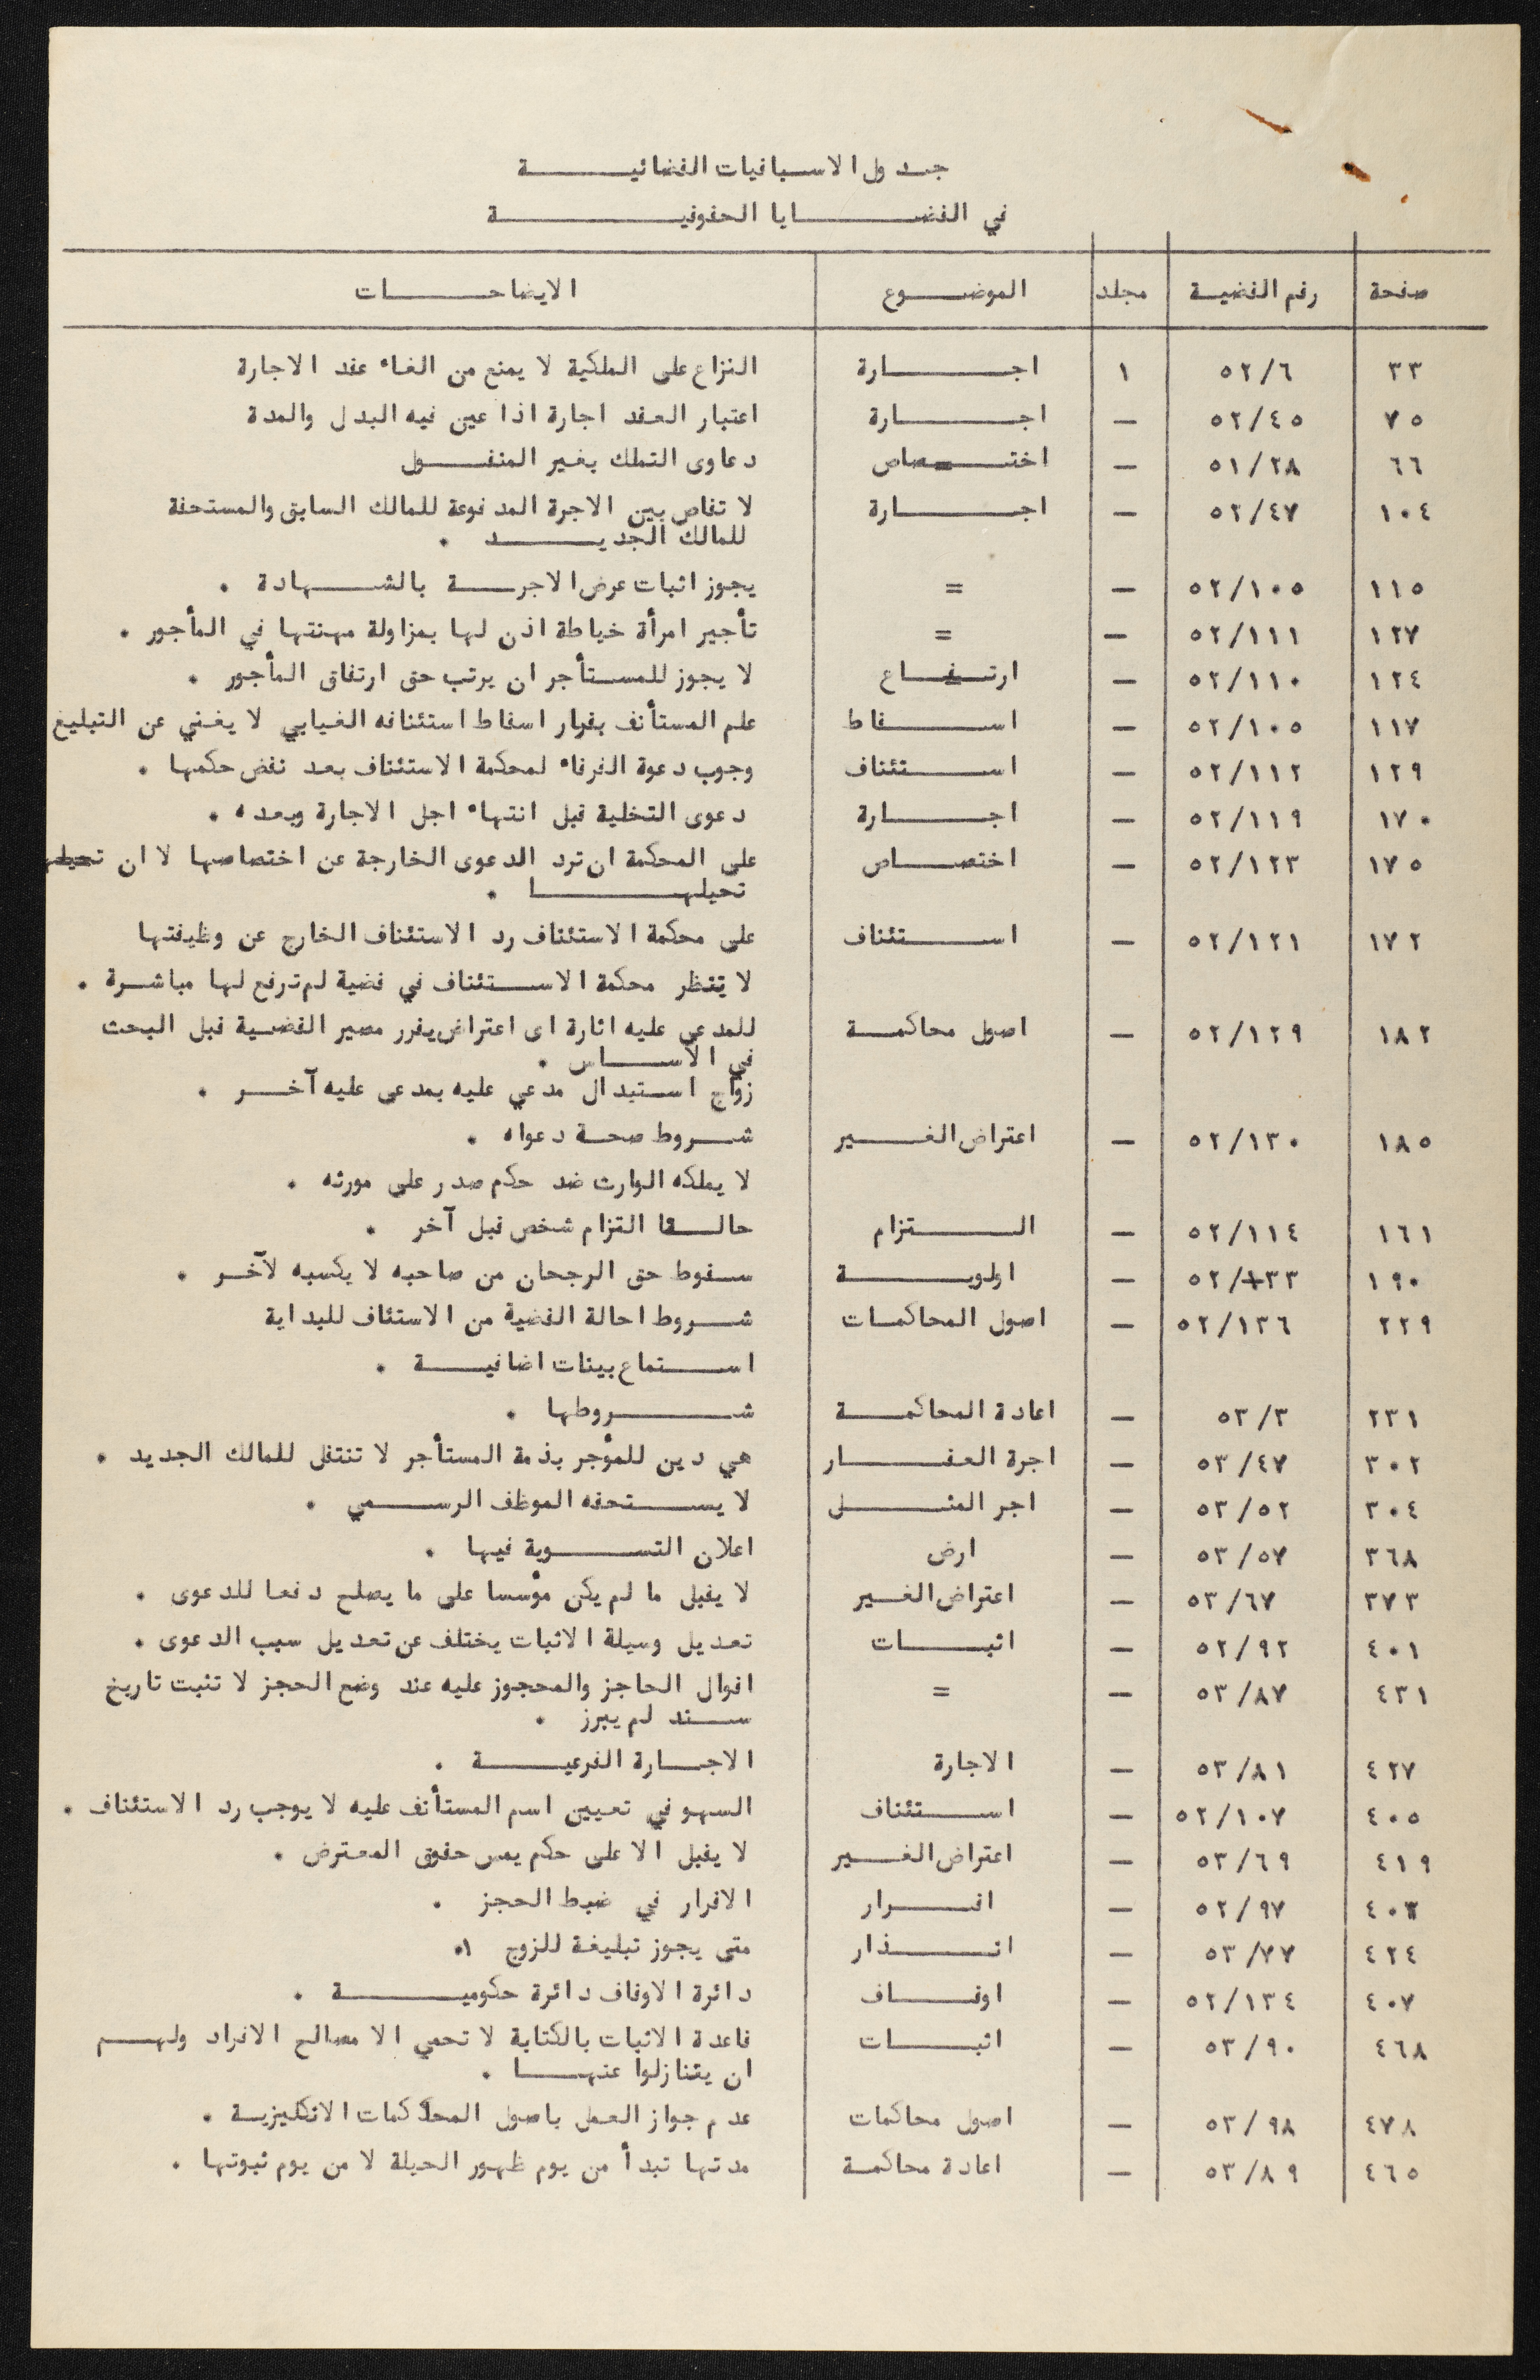 جدول الاسبانيات القضائية
في القضايا الحقوقية
صفحة | رقم القضية | مجلد | الموضوع | الايضاحات
٣٣ | ٥٢/٦ | ١ | اجارة | النزاع على الملكية لا يمنع من الغاء عقد الاجارة
٧٥ | ٥٢/٤٥ | — | اجارة | اعتبار العقد اجارة اذا عين فيه البدل والمدة
٦٦ | ٥١/٢٨ | — | اختصاص | دعاوى التملك بغير المنقول
١٠٤ | ٥٢/٤٧ | — | اجارة | لا تقاص بين الاجرة المدفوعة للمالك السابق والمستحقة
للمالك الجديد .
١١٥ | ٥٢/١٠٥ | — | = | يجوز اثبات عرض الاجرة بالشهادة .
١٢٧ | ٥٢/١١١ | — | = | تأجير امرأة خياطة اذن لها بمزاولة مهنتها في المأجور .
١٢٤ | ٥٢/١١٠ | — | ارتفاع | لا يجوز للمستأجر ان يرتب حق ارتفاق المأجور .
١١٧ | ٥٢/١٠٥ | — | اسقاط | علم المستأنف بقرار اسقاط استئنافه الغيابي لا يغني عن التبليغ
١٢٩ | ٥٢/١١٢ | — | استئناف | وجوب دعوة الفرقاء لمحكمة الاستئناف بعد نقض حكمها .
١٧٠ | ٥٢/١١٩ | — | اجارة | دعوى التخلية قبل انتهاء اجل الاجارة وبعده .
١٧٥ | ٥٢/١٢٣ | — | اختصاص | على المحكمة ان ترد الدعوى الخارجة عن اختصاصها لا ان تحيلها
تحيلها .
١٧٢ | ٥٢/١٢١ | — | استئناف | على محكمة الاستئناف رد الاستئناف الخارج عن وظيفتها
لا تنظر محكمة الاستئناف في قضية لم ترفع لها مباشرة .
١٨٢ | ٥٢/١٢٩ | — | اصول محاكمة | للمدعى عليه اثارة اى اعتراض يقرر مصير القضية قبل البحث
في الاساس .
زواج استبدال مدعي عليه بمدعى عليه آخر .
١٨٥ | ٥٢/١٣٠ | — | اعتراض الغير | شروط صحة دعواه .
لا يملكه الوارث ضد حكم صدر على مورثه .
١٦١ | ٥٢/١١٤ | — | التزام | حالة التزام شخص قبل آخر .
١٩٠ | ٥٢/١٣٣ | — | اولوية | سقوط حق الرجحان من صاحبه لا يكسبه لآخر .
٢٢٩ | ٥٢/١٣٦ | — | اصول المحاكمات | شروط احالة القضية من الاستئاف للبداية
استماع بينات اضافية .
٢٣١ | ٥٣/٣ | — | اعادة المحاكمة | شروطها .
٣٠٢ | ٥٣/٤٧ | — | اجرة العقار | هي دين للمؤجر بذمة المستأجر لا تنتقل للمالك الجديد .
٣٠٤ | ٥٣/٥٢ | — | اجر المثل | لا يستحقه الموظف الرسمي .
٣٦٨ | ٥٣/٥٧ | — | ارض | اعلان التسوية فيها .
٣٧٣ | ٥٣/٦٧ | — | اعتراض الغير | لا يقبل ما لم يكن مؤسسا على ما يصلح دفعا للدعوى .
٤٠١ | ٥٢/٩٢ | — | اثبات | تعديل وسيلة الاثبات يختلف عن تعديل سبب الدعوى .
٤٣١ | ٥٣/٨٧ | — | = | اقوال الحاجز والمحجوز عليه عند وضع الحجز لا تثبت تاريخ
سند لم يبرز .
٤٢٧ | ٥٣/٨١ | — | الاجارة | الاجارة الفرعية .
٤٠٥ | ٥٢/١٠٧ | — | استئناف | السهو في تعيين اسم المستأنف عليه لا يوجب رد الاستئناف .
٤١٩ | ٥٣/٦٩ | — | اعتراض الغير | لا يقبل الا على حكم يمس حقوق المعترض .
٤٠٣ | ٥٢/٩٧ | — | اقرار | الاقرار في ضبط الحجز .
٤٢٤ | ٥٣/٧٧ | — | انذار | متى يجوز تبليغة للزوج .
٤٠٧ | ٥٢/١٣٤ | — | اوقاف | دائرة الاوقاف دائرة حكومية .
٤٦٨ | ٥٣/٩٠ | — | اثبات | قاعدة الاثبات بالكتابة لا تحمي الا مصالح الافراد ولهم
ان يتنازلوا عنها .
٤٧٨ | ٥٣/٩٨ | — | اصول محاكمات | عدم جواز العمل باصول المحاكمات الانكليزية .
٤٦٥ | ٥٣/٨٩ | — | اعادة محاكمة | مدتها تبدأ من يوم ظهور الحيلة لا من يوم ثبوتها .